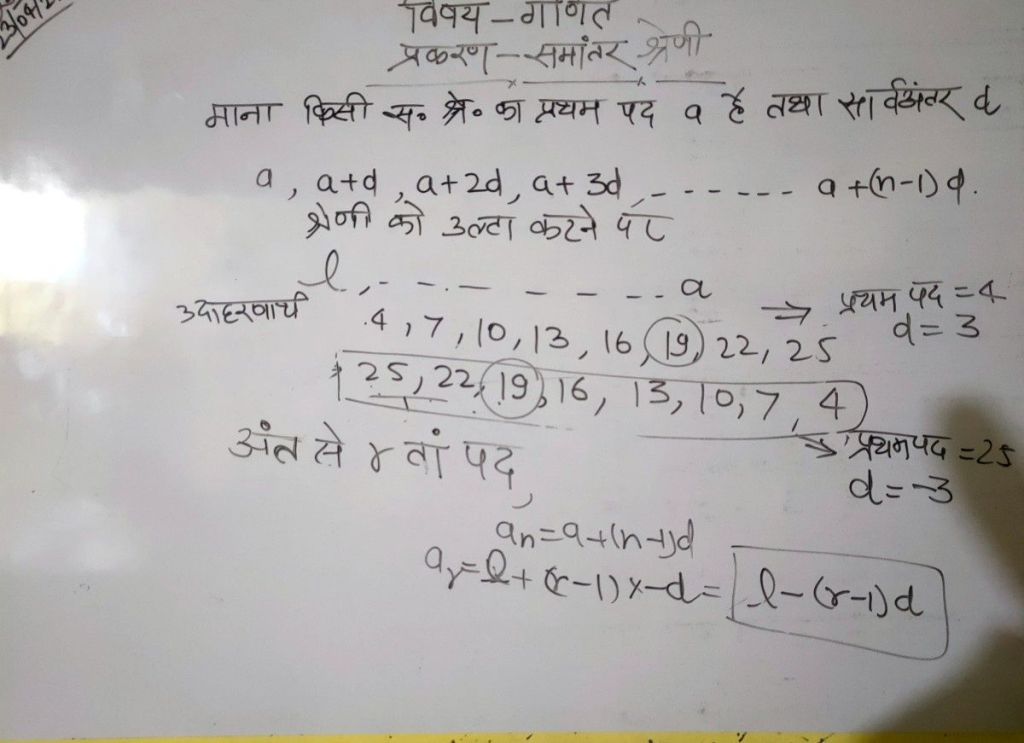 23/04/2
विषय – गणित
प्रकरण – समांतर श्रेणी
माना किसी स॰ श्रे॰ का प्रथम पद a है तथा सार्वअंतर d
a, a+d, a+2d, a+3d, ------- a+(n-1)d.
श्रेणी को उल्टा करने पर
l, - - - - - - - a
उदाहरणार्थ
4, 7, 10, 13, 16, 19, 22, 25
⇒ प्रथम पद = 4
d = 3
25, 22, 19, 16, 13, 10, 7, 4
⇒ प्रथम पद = 25
d = -3
अंत से r वां पद,
an = a+(n-1)d
ar = l + (r-1)x-d = l-(r-1)d